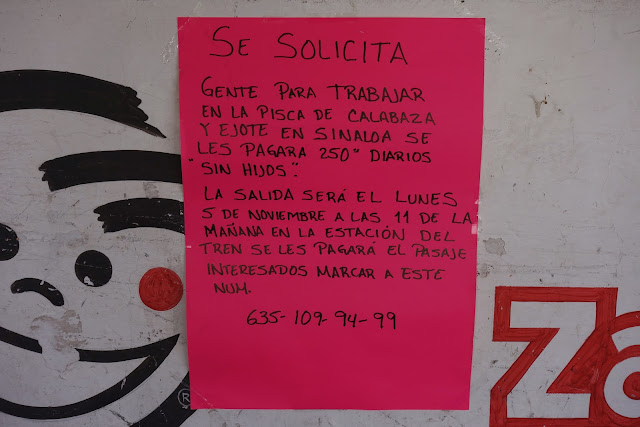 SE SOLICITA
GENTE PARA TRABAJAR
EN LA PISCA DE CALABAZA
Y EJOTE EN SINALOA SE
LES PAGARA 250° DIARIOS
"SIN HIJOS".
LA SALIDA SERÁ EL LUNES
5 DE NOVIEMBRE A LAS 11 DE LA
MAÑANA EN LA ESTACIÓN DEL
TREN SE LES PAGARÁ EL PASAJE
INTERESADOS MARCAR A ESTE
NUM.
635-109-94-99
®
Za